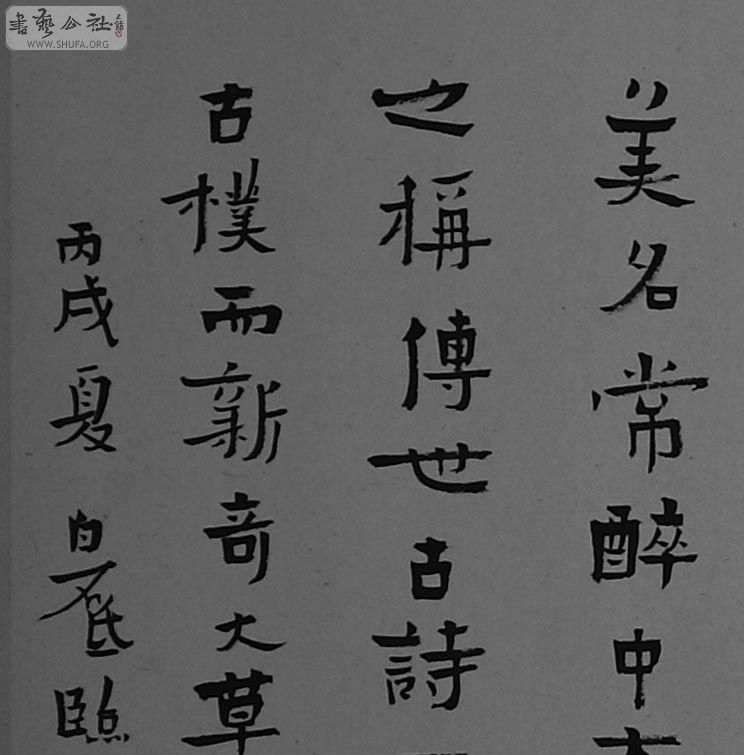 書藝公社
WWW.SHUFA.ORG
美名常醉中
之稱傳世古詩
古樸而新奇大草
丙戌夏 白底臨